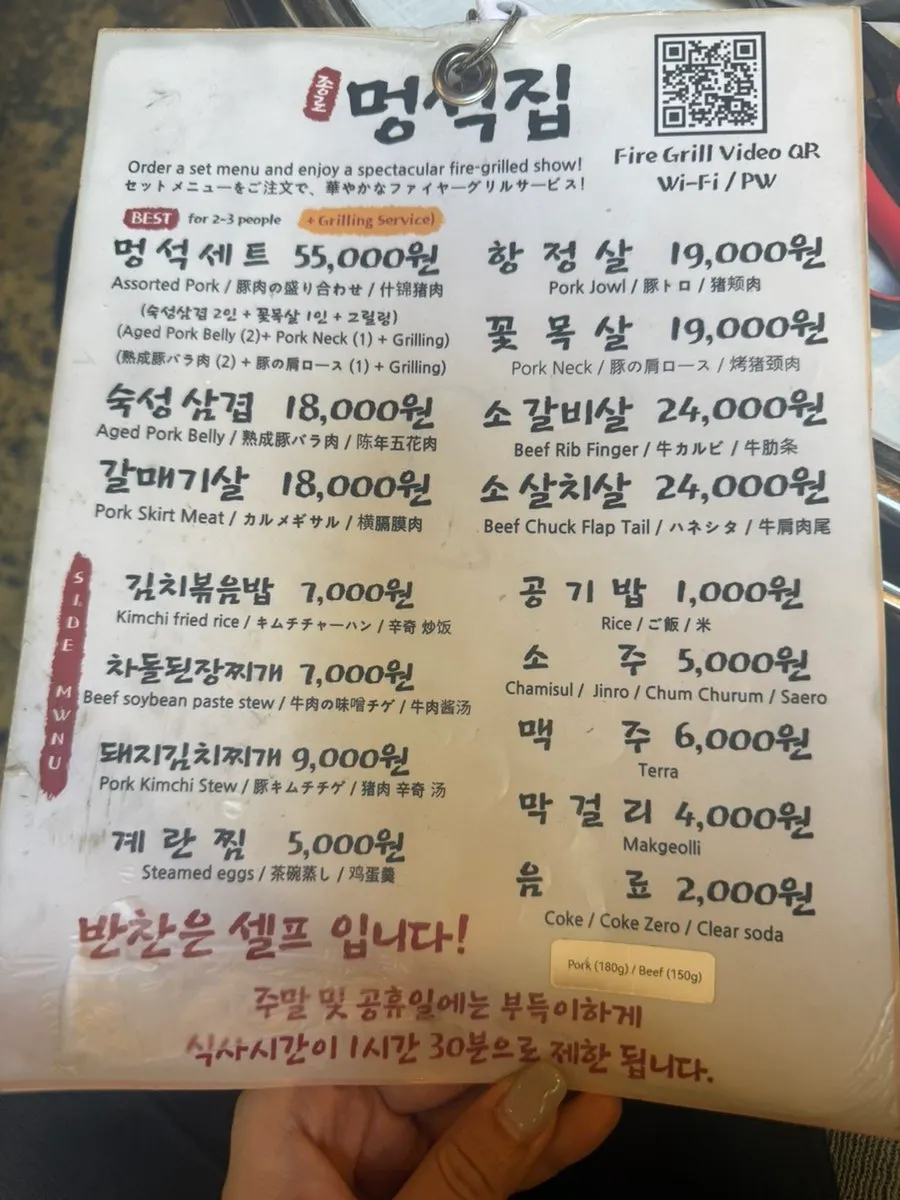 종로
멍석집
Fire Grill Video QR
Wi-Fi / PW
Order a set menu and enjoy a spectacular fire-grilled show!
セットメニューをご注文で、華やかなファイヤーグリルサービス!
BEST for 2-3 people + Grilling Service)
멍석세트 55,000원
Assorted Pork / 豚肉の盛り合わせ / 什锦猪肉
(숙성삼겹 2인 + 꽃목살 1인 + 그릴링)
(Aged Pork Belly (2)+ Pork Neck (1) + Grilling)
(熟成豚バラ肉 (2) + 豚の肩ロース (1) + Grilling)
숙성삼겹 18,000원
Aged Pork Belly / 熟成豚バラ肉 / 陈年五花肉
갈매기살 18,000원
Pork Skirt Meat / カルメギサル / 横膈膜肉
항정살 19,000원
Pork Jowl / 豚トロ / 猪颊肉
꽃목살 19,000원
Pork Neck / 豚の肩ロース / 烤猪颈肉
소갈비살 24,000원
Beef Rib Finger / 牛カルビ / 牛肋条
소살치살 24,000원
Beef Chuck Flap Tail / ハネシタ / 牛肩肉尾
SIDE MWNU
김치볶음밥 7,000원
Kimchi fried rice / キムチチャーハン / 辛奇 炒饭
차돌된장찌개 7,000원
Beef soybean paste stew / 牛肉の味噌チゲ / 牛肉酱汤
돼지김치찌개 9,000원
Pork Kimchi Stew / 豚キムチチゲ / 猪肉 辛奇 汤
계란찜 5,000원
Steamed eggs / 茶碗蒸し / 鸡蛋羹
공기밥 1,000원
Rice / ご飯 / 米
소주 5,000원
Chamisul / Jinro / Chum Churum / Saero
맥주 6,000원
Terra
막걸리 4,000원
Makgeolli
음료 2,000원
Coke / Coke Zero / Clear soda
Pork (180g) / Beef (150g)
반찬은 셀프 입니다!
주말 및 공휴일에는 부득이하게
식사시간이 1시간 30분으로 제한 됩니다.